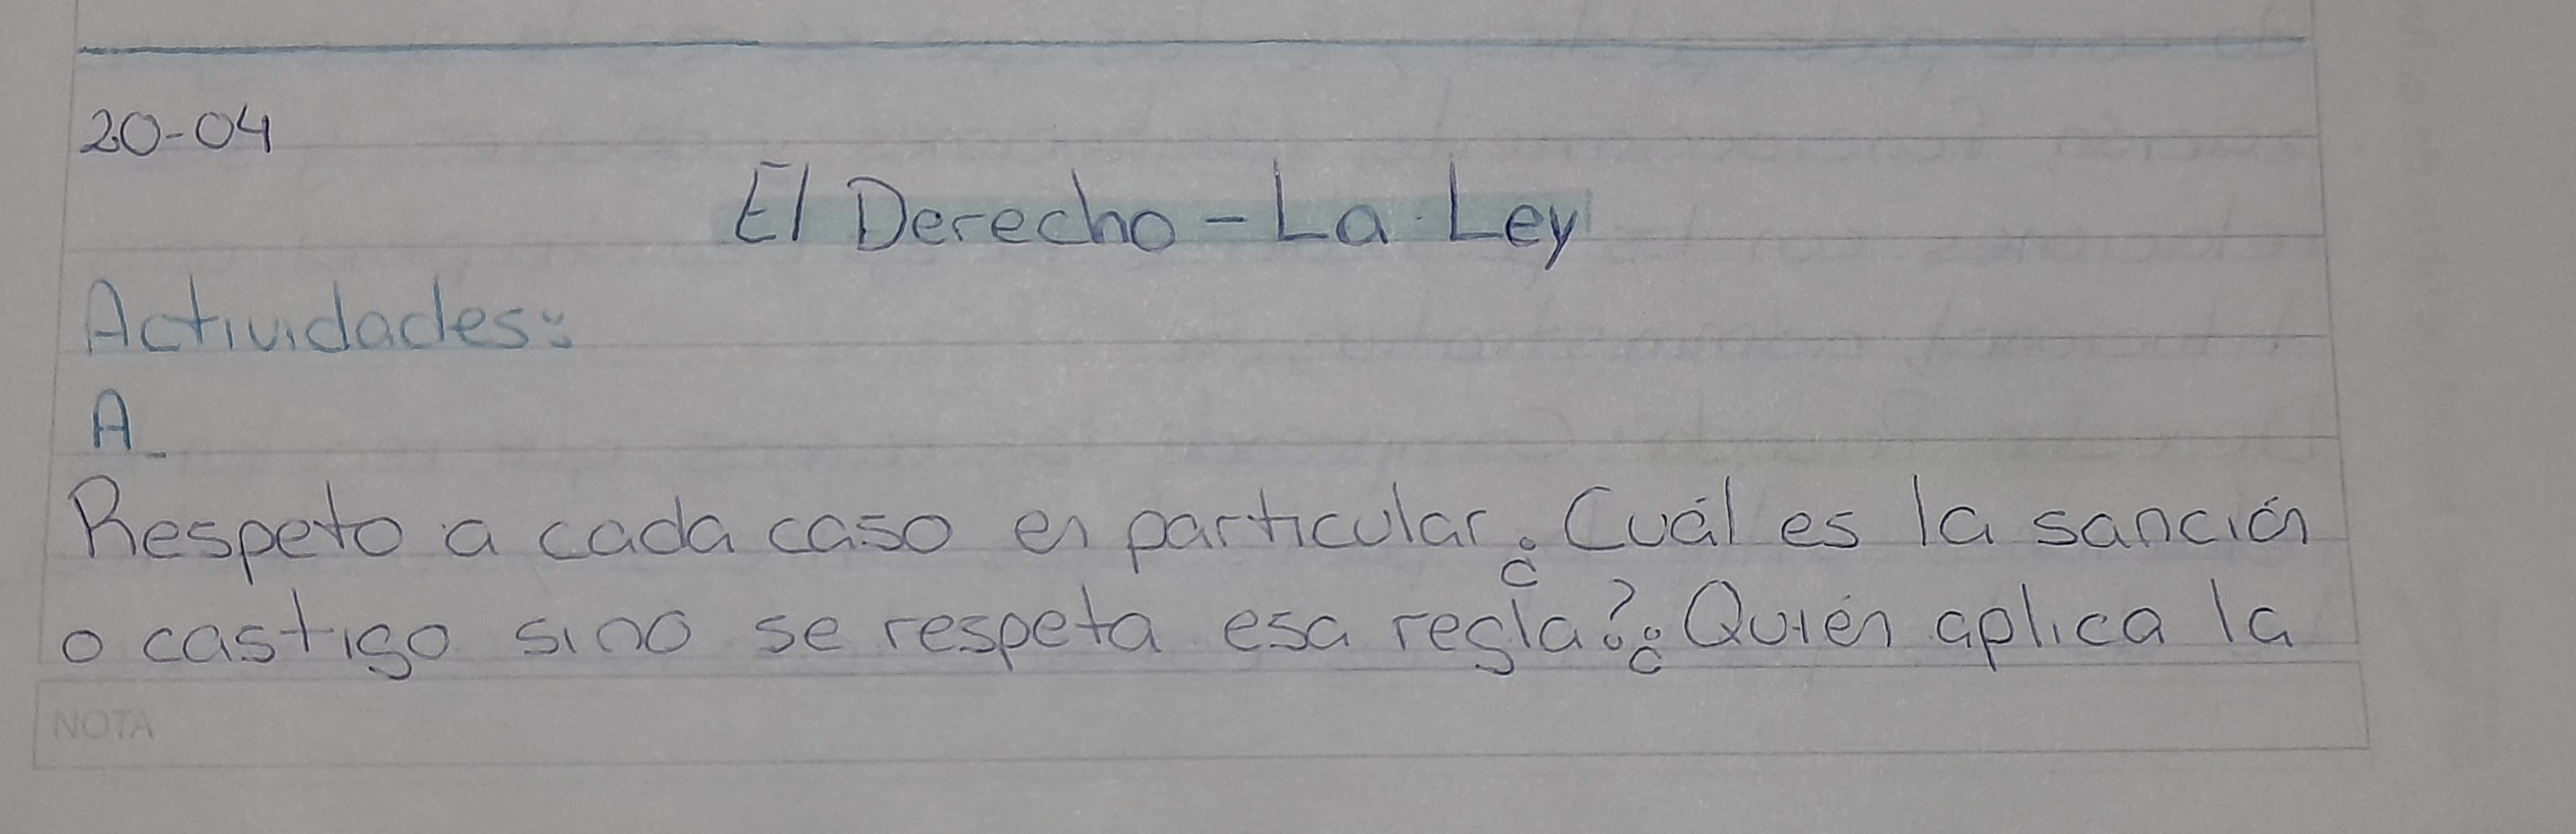 20-04
El Derecho - La Ley
Actividades:
A_
Respeto a cada caso en particular ¿Cuál es la sanción
o castigo sino se respeta esa regla? ¿Quién aplica la
NOTA